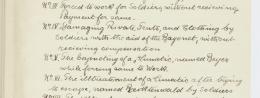 No III Forced to work for Soldiers without receiving
Payment for same.
No IV. Damaging Private Tents, and Clothing by
Soldiers with the aid of the Bayonet, without
receiving compensation
No V. The of a Lunatic, named Geyer
while being same to Work.
No VI. The illtreatment of a Lunatic after trying
to escape, named by Soldiers